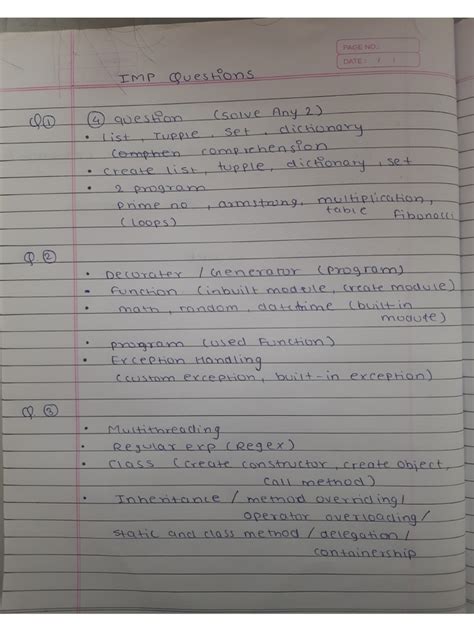 PAGE NO.:
DATE: / /
IMP Questions
Q① ④ question (solve Any 2)
• List, Tupple, set, dictionary
comphen comprehension
• create list, tupple, dictionary, set
• 2 program
prime no, armstrong, multiplication,
table Fibonacci
(loops)
Q ②
• Decorater / Generator (program)
• Function (inbuilt module, create module)
• math, random, datetime (built-in
module)
• program (used Function)
• Exception Handling
(custom exception, built-in exception)
Q ③
• Multithreading
• Regular exp (Regex)
• Class (create constructor, create object,
call method)
• Inheritance / method overriding /
operator overloading /
static and class method / delegation /
containership